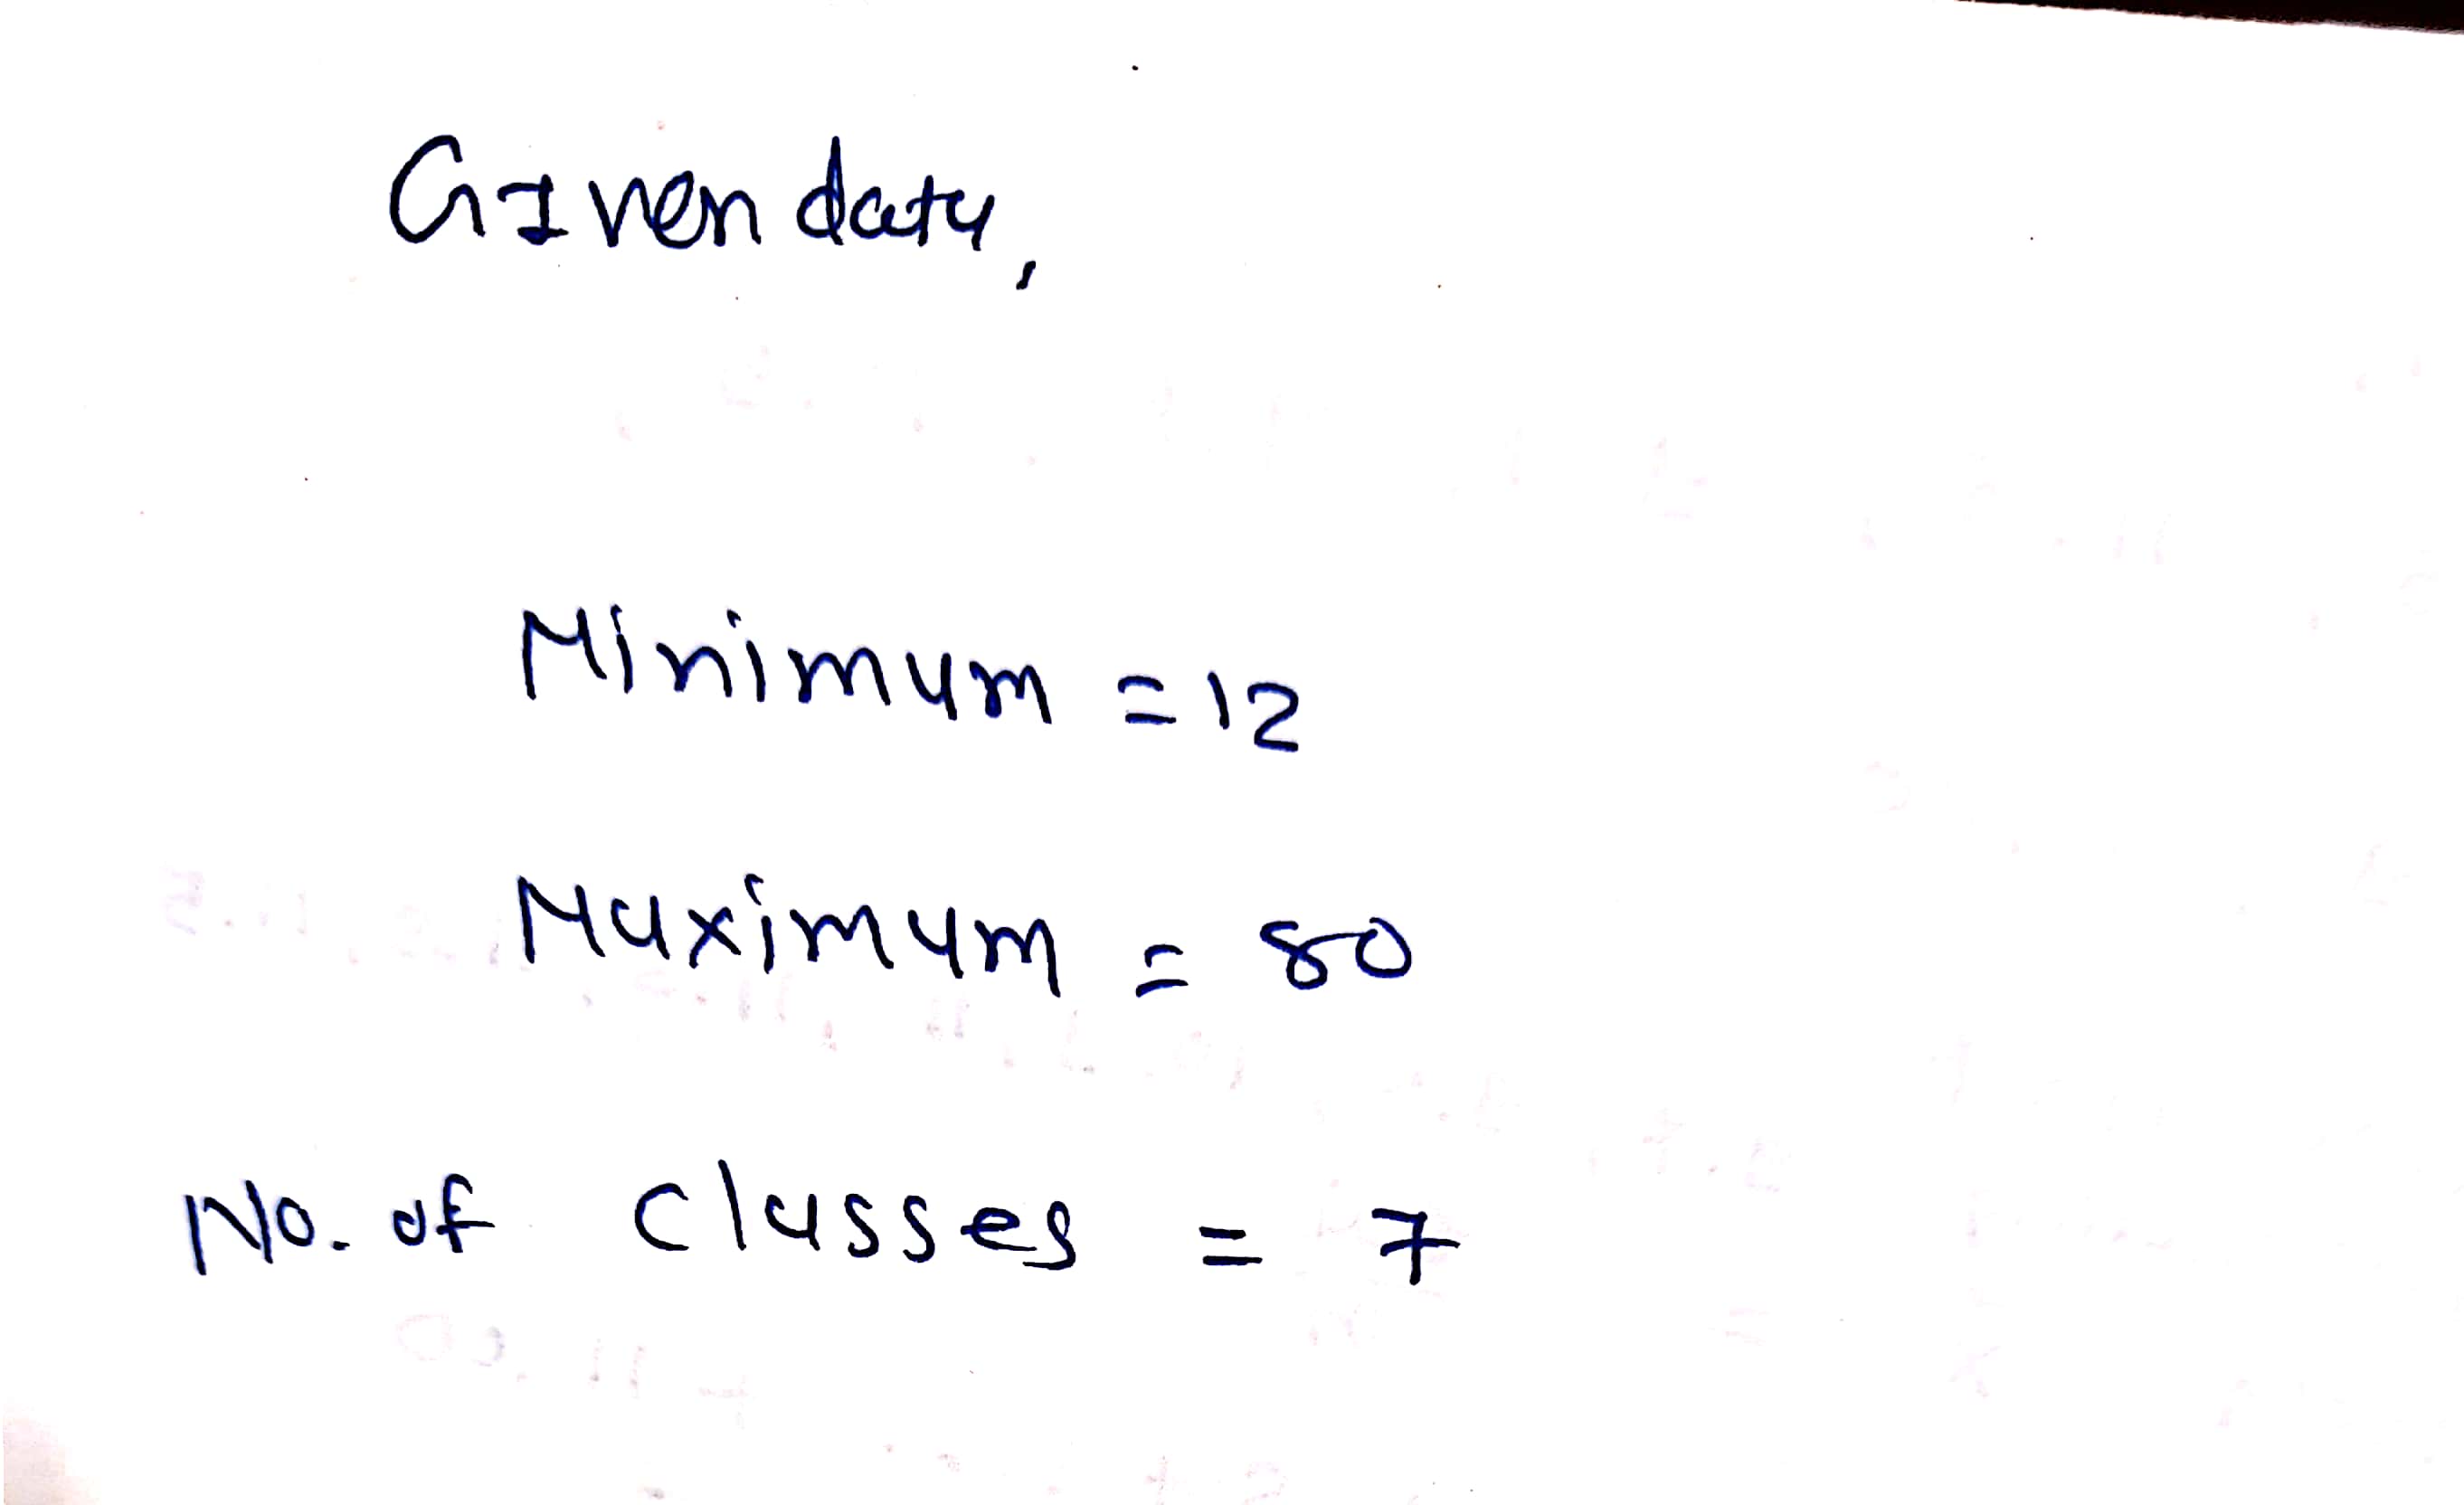 Given data,
Minimum = 12
Maximum = 80
No. of Classes = 7